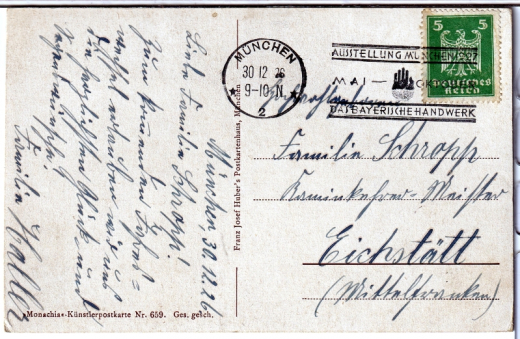 München, 30.12.26
Liebe Familie Schropp!
Zum kommenden Jahres-
wechsel erlauben wir uns
die herzlichsten Glück- und
Segenswünsche!
Familie Haller
»Monachia«-Künstlerpostkarte Nr. 659. Ges. gesch.
Franz Josef Huber's Postkartenhaus, München
MÜNCHEN
30 12 26
9-10 N.
2
AUSSTELLUNG MÜNCHEN 1927
MAI —
DAS BAYERISCHE HANDWERK
5 5
Deutsches
Reich
Familie Schropp
Kaminkehrer-Meister
Eichstätt
(Mittelfranken)